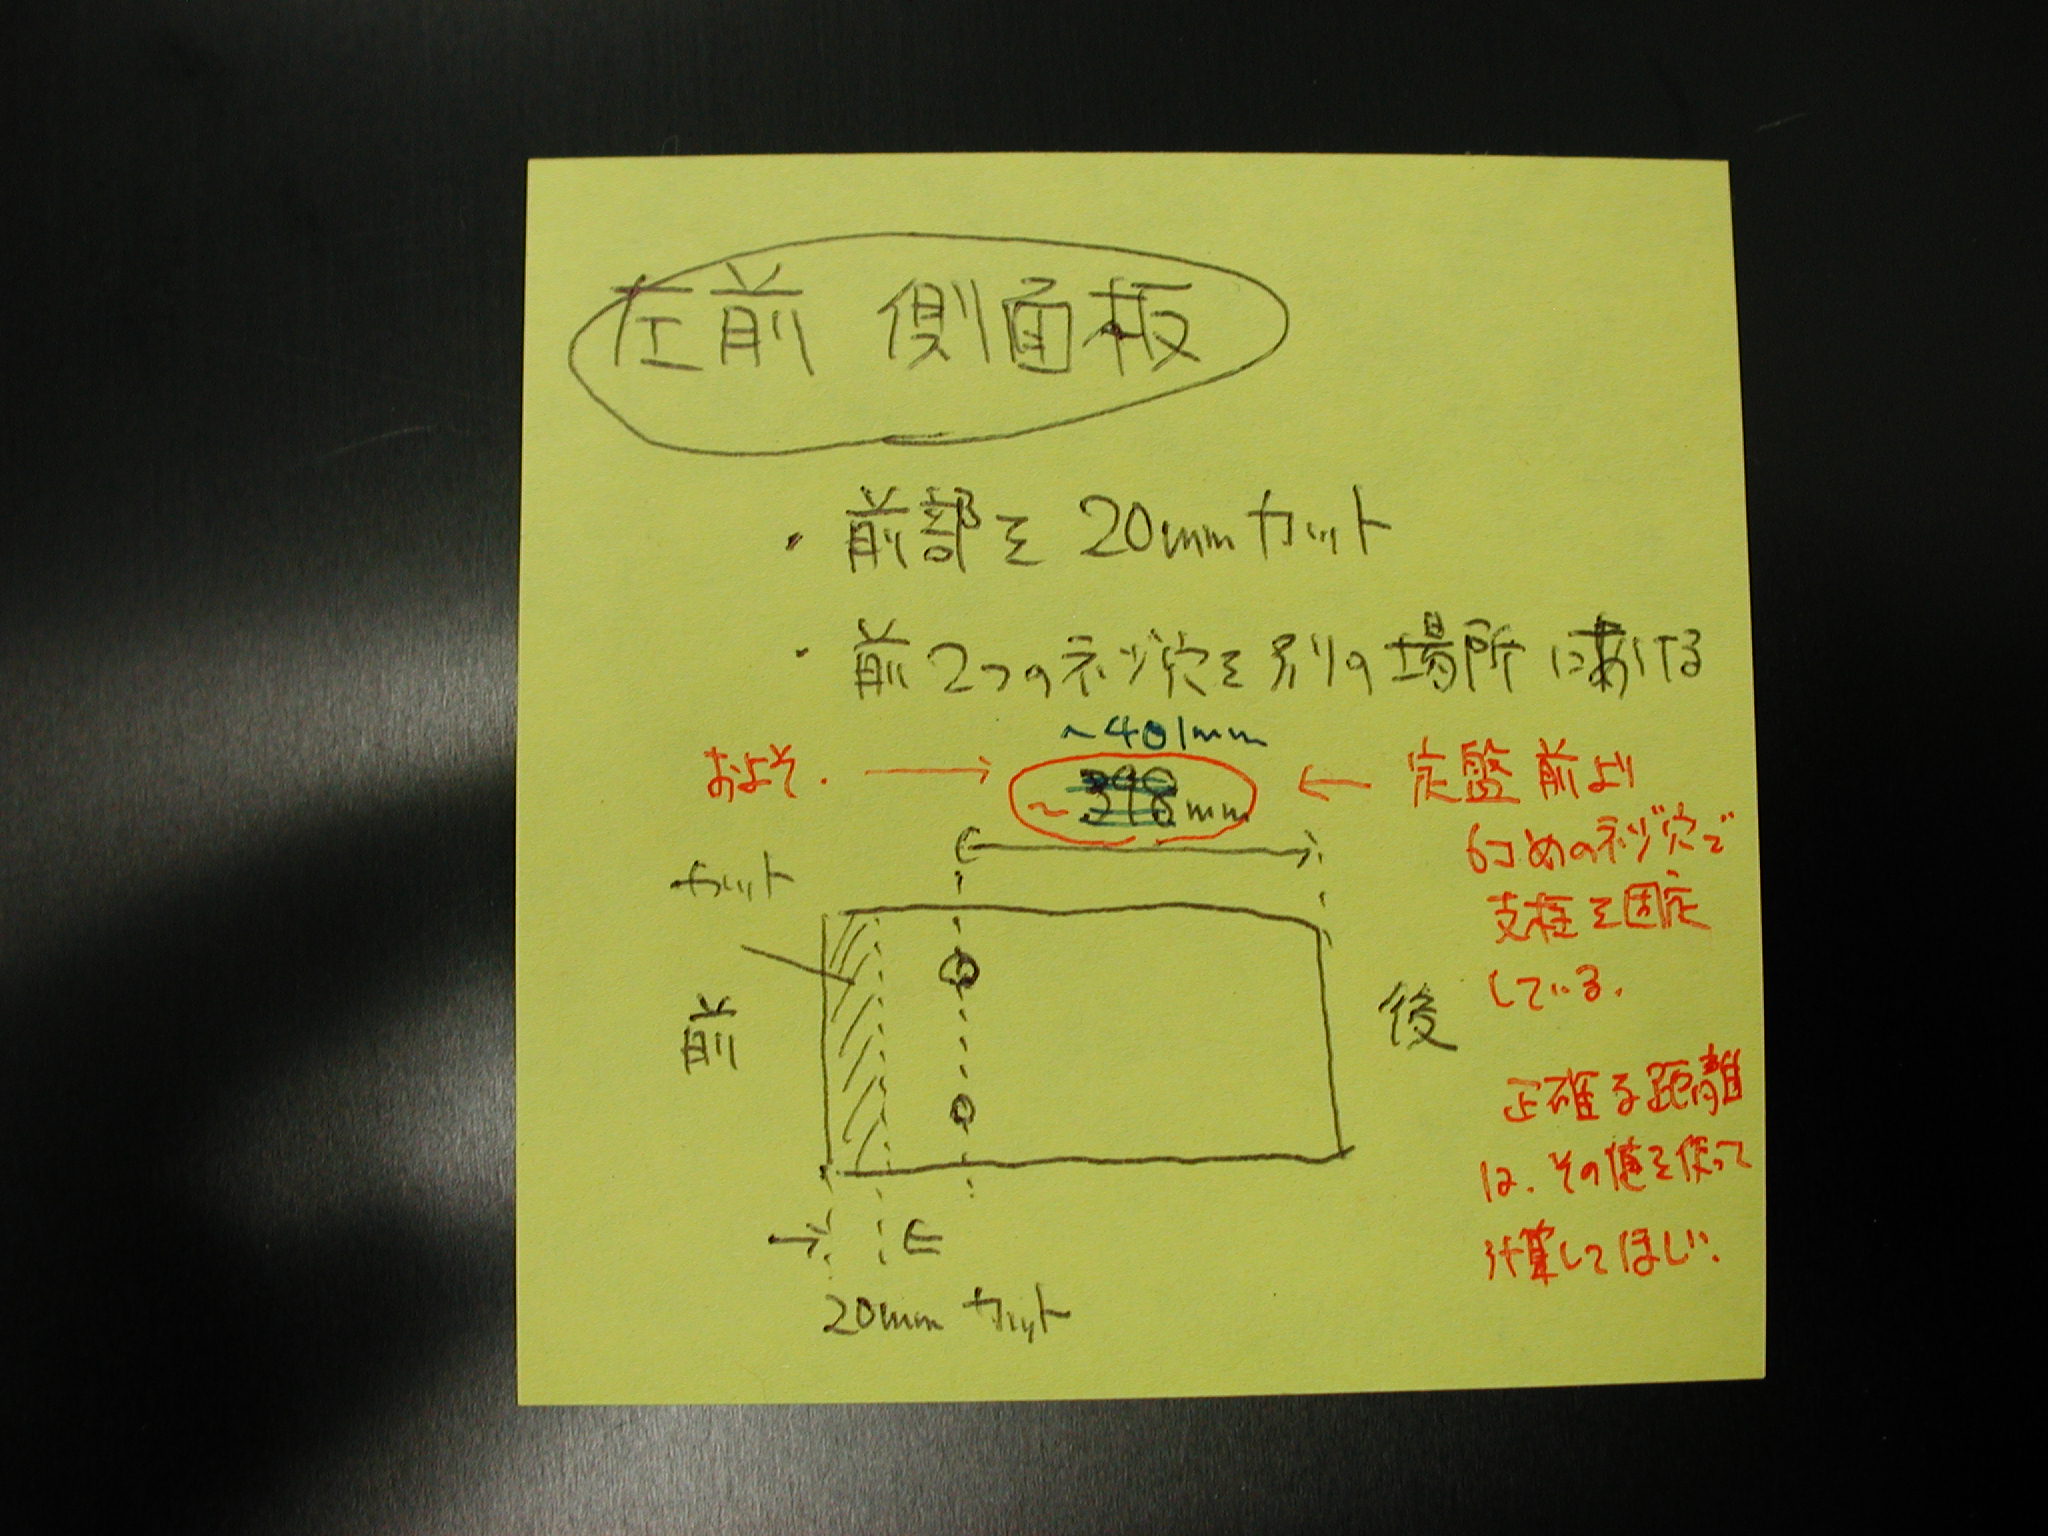 左前 側面板
・前部を 20mmカット
・前2つのネジ穴を別の場所にあける
~401mm
およそ.
~398mm
定盤前より
6コめのネジ穴で
支柱を固定
している.
カット
前
後
正確な距離
は、その値を使って
計算してほしい.
20mm カット